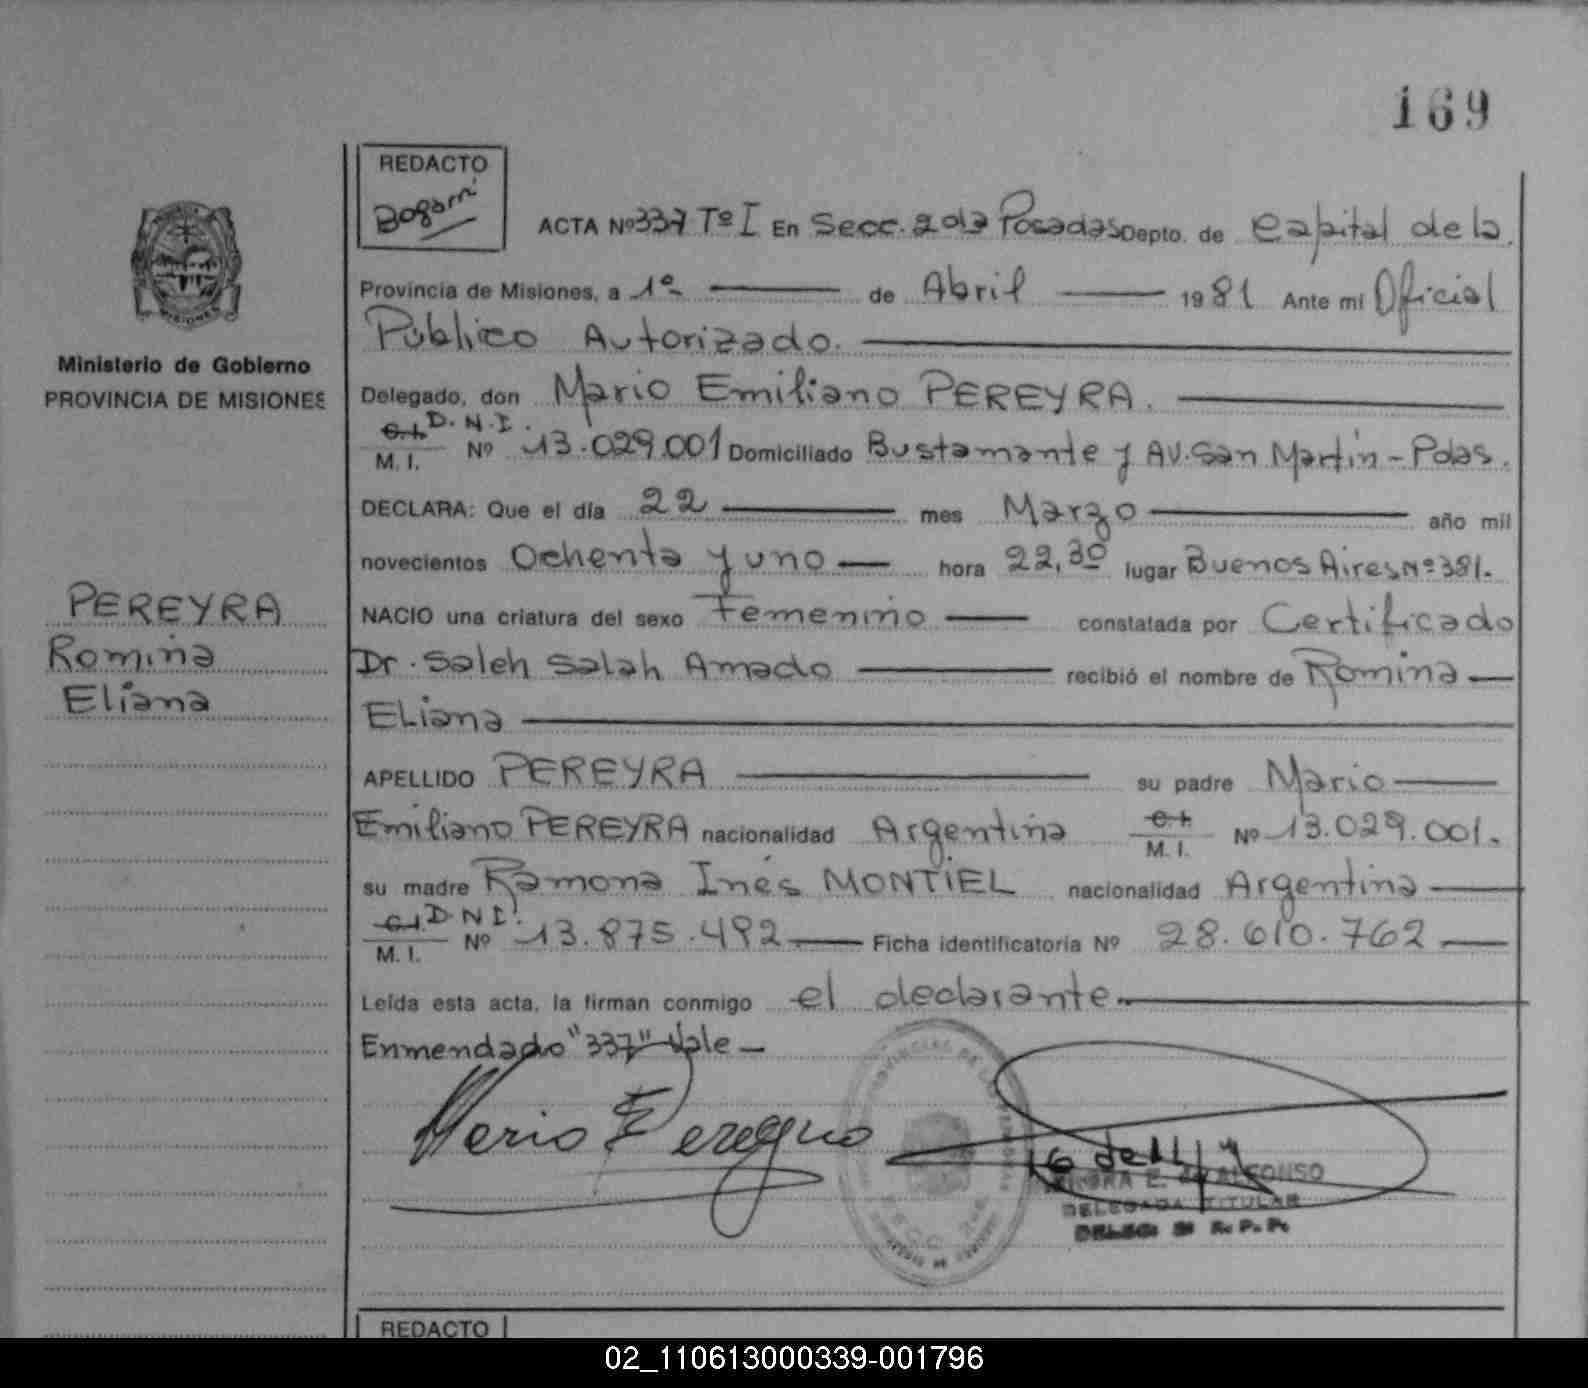 169
REDACTO
Bogarin
ACTA Nº 337 Tº I En Secc. 2da Posadas Depto. de Capital de la
Provincia de Misiones, a 1º de Abril 1981 Ante mí Oficial
Público Autorizado.
Ministerio de Gobierno
PROVINCIA DE MISIONES
Delegado, don Mario Emiliano PEREYRA.
C.I. D.N.I.
M. I. Nº 13.029.001 Domiciliado Bustamante y Av. San Martín - Pdas.
DECLARA: Que el día 22 mes Marzo año mil
novecientos Ochenta y uno hora 22,30 lugar Buenos Aires Nº 381.
PEREYRA
Romina
Eliana
NACIO una criatura del sexo Femenino constatada por Certificado
Dr. Saleh Salah Amado recibió el nombre de Romina
Eliana
APELLIDO PEREYRA su padre Mario
Emiliano PEREYRA nacionalidad Argentina C.I. M. I. Nº 13.029.001.
su madre Ramona Inés MONTIEL nacionalidad Argentina
C.I. D.N.I.
M. I. Nº 13.875.492 Ficha identificatoria Nº 28.610.762
Leída esta acta, la firman conmigo el declarante.
Enmendado "337" Vale
Mario E Pereyra
E. de ALFONSO
DELEGADA TITULAR
R. P. P.
REDACTO
02_110613000339-001796